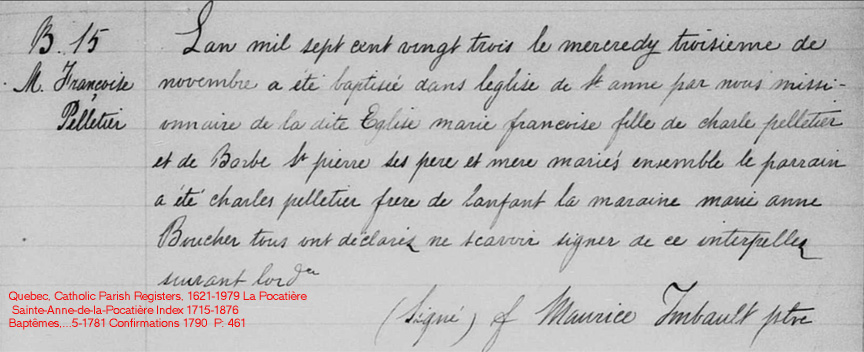 B. 15
M. Françoise
Pelletier
Lan mil sept cent vingt trois le mercredy troisieme de
novembre a été baptisée dans leglise de St anne par nous missi-
onnaire de la dite Eglise marie francoise fille de charle pelletier
et de Barbe St pierre ses pere et mere mariés ensemble le parrain
a été charles pelletier frere de lanfant la maraine marie anne
Boucher tous ont declarez ne scavoir signer de ce interpellez
suivant lordce
(Signé) f Maurice Imbault ptre
Quebec, Catholic Parish Registers, 1621-1979 La Pocatière
Sainte-Anne-de-la-Pocatière Index 1715-1876
Baptêmes,...5-1781 Confirmations 1790 P: 461